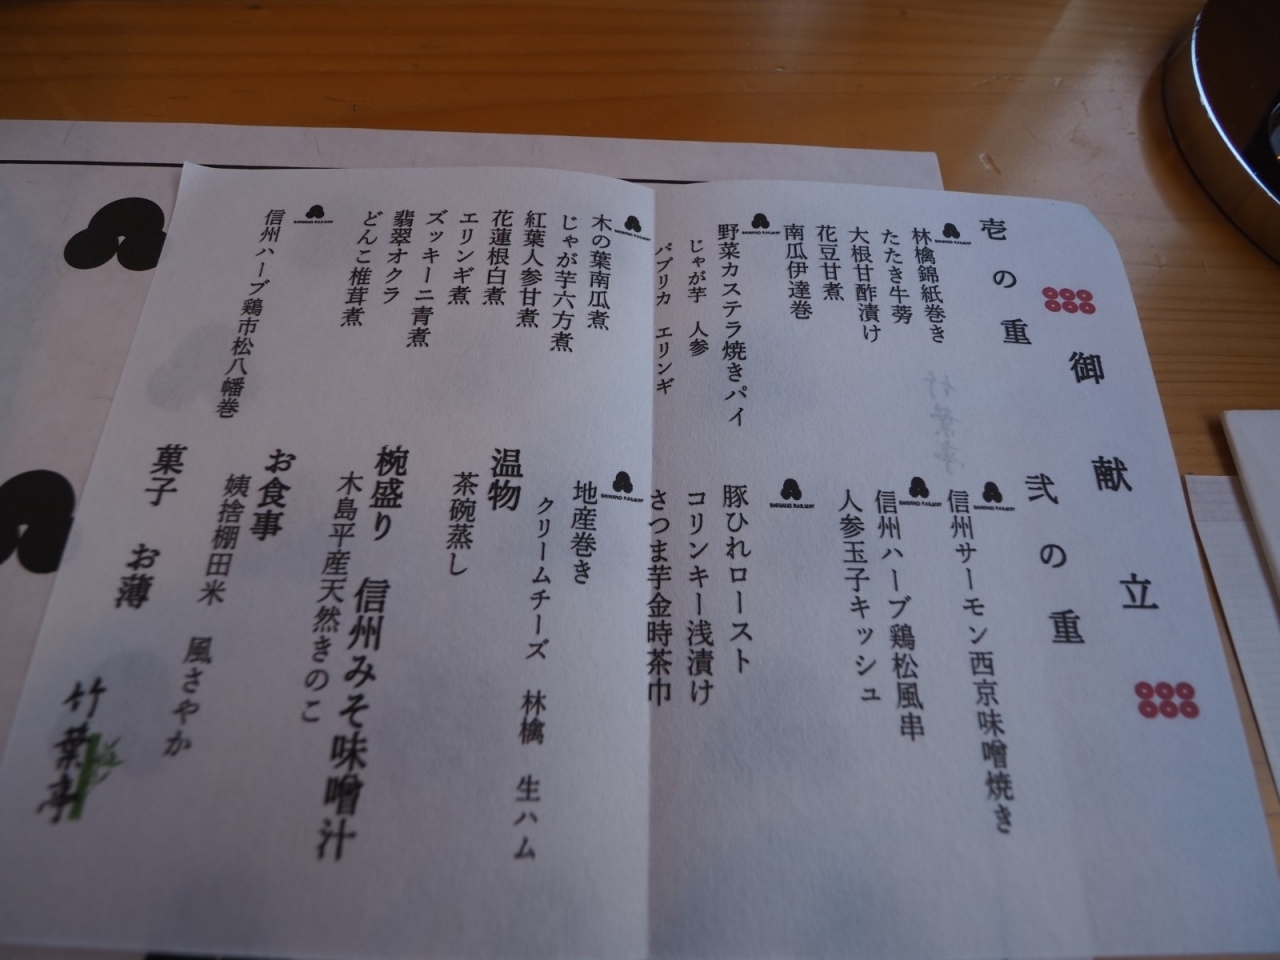 御献立
壱の重
林檎錦紙巻き
たたき牛蒡
大根甘酢漬け
花豆甘煮
南瓜伊達巻
野菜カステラ焼きパイ
じゃが芋 人参
パプリカ エリンギ
木の葉南瓜煮
じゃが芋六方煮
紅葉人参甘煮
花蓮根白煮
エリンギ煮
ズッキーニ青煮
翡翠オクラ
どんこ椎茸煮
信州ハーブ鶏市松八幡巻
弐の重
信州サーモン西京味噌焼き
信州ハーブ鶏松風串
人参玉子キッシュ
豚ひれロースト
コリンキー浅漬け
さつま芋金時茶巾
地産巻き
クリームチーズ 林檎 生ハム
温物
茶碗蒸し
椀盛り 信州みそ味噌汁
木島平産天然きのこ
お食事
姨捨棚田米 風さやか
菓子 お薄
竹葉亭